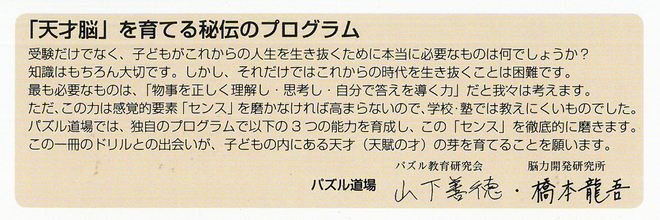 「天才脳」を育てる秘伝のプログラム
受験だけでなく、子どもがこれからの人生を生き抜くために本当に必要なものは何でしょうか?
知識はもちろん大切です。しかし、それだけではこれからの時代を生き抜くことは困難です。
最も必要なものは、「物事を正しく理解し・思考し・自分で答えを導く力」だと我々は考えます。
ただ、この力は感覚的要素「センス」を磨かなければ高まらないので、学校・塾では教えにくいものでした。
パズル道場では、独自のプログラムで以下の3つの能力を育成し、この「センス」を徹底的に磨きます。
この一冊のドリルとの出会いが、子どもの内にある天才(天賦の才)の芽を育てることを願います。
パズル教育研究会 脳力開発研究所
パズル道場 山下善徳・橋本龍吾